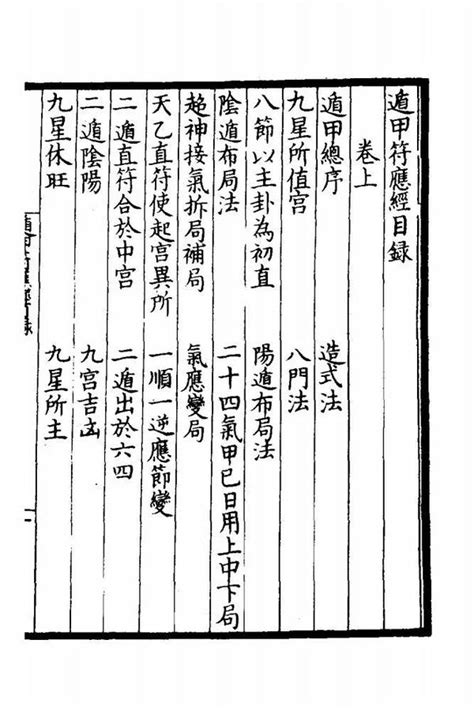 遁甲符應經目錄
卷上
遁甲總序　造式法
九星所值宮　八門法
八節以主卦為初直　陽遁布局法
陰遁布局法　二十四氣甲巳日用上中下局
超神接氣拆局補局　氣應變局
天乙直符使起宮異所　一順一逆應節變
二遁直符合於中宮　二遁出於六四
二遁陰陽　九宮吉凶
九星休旺　九星所主